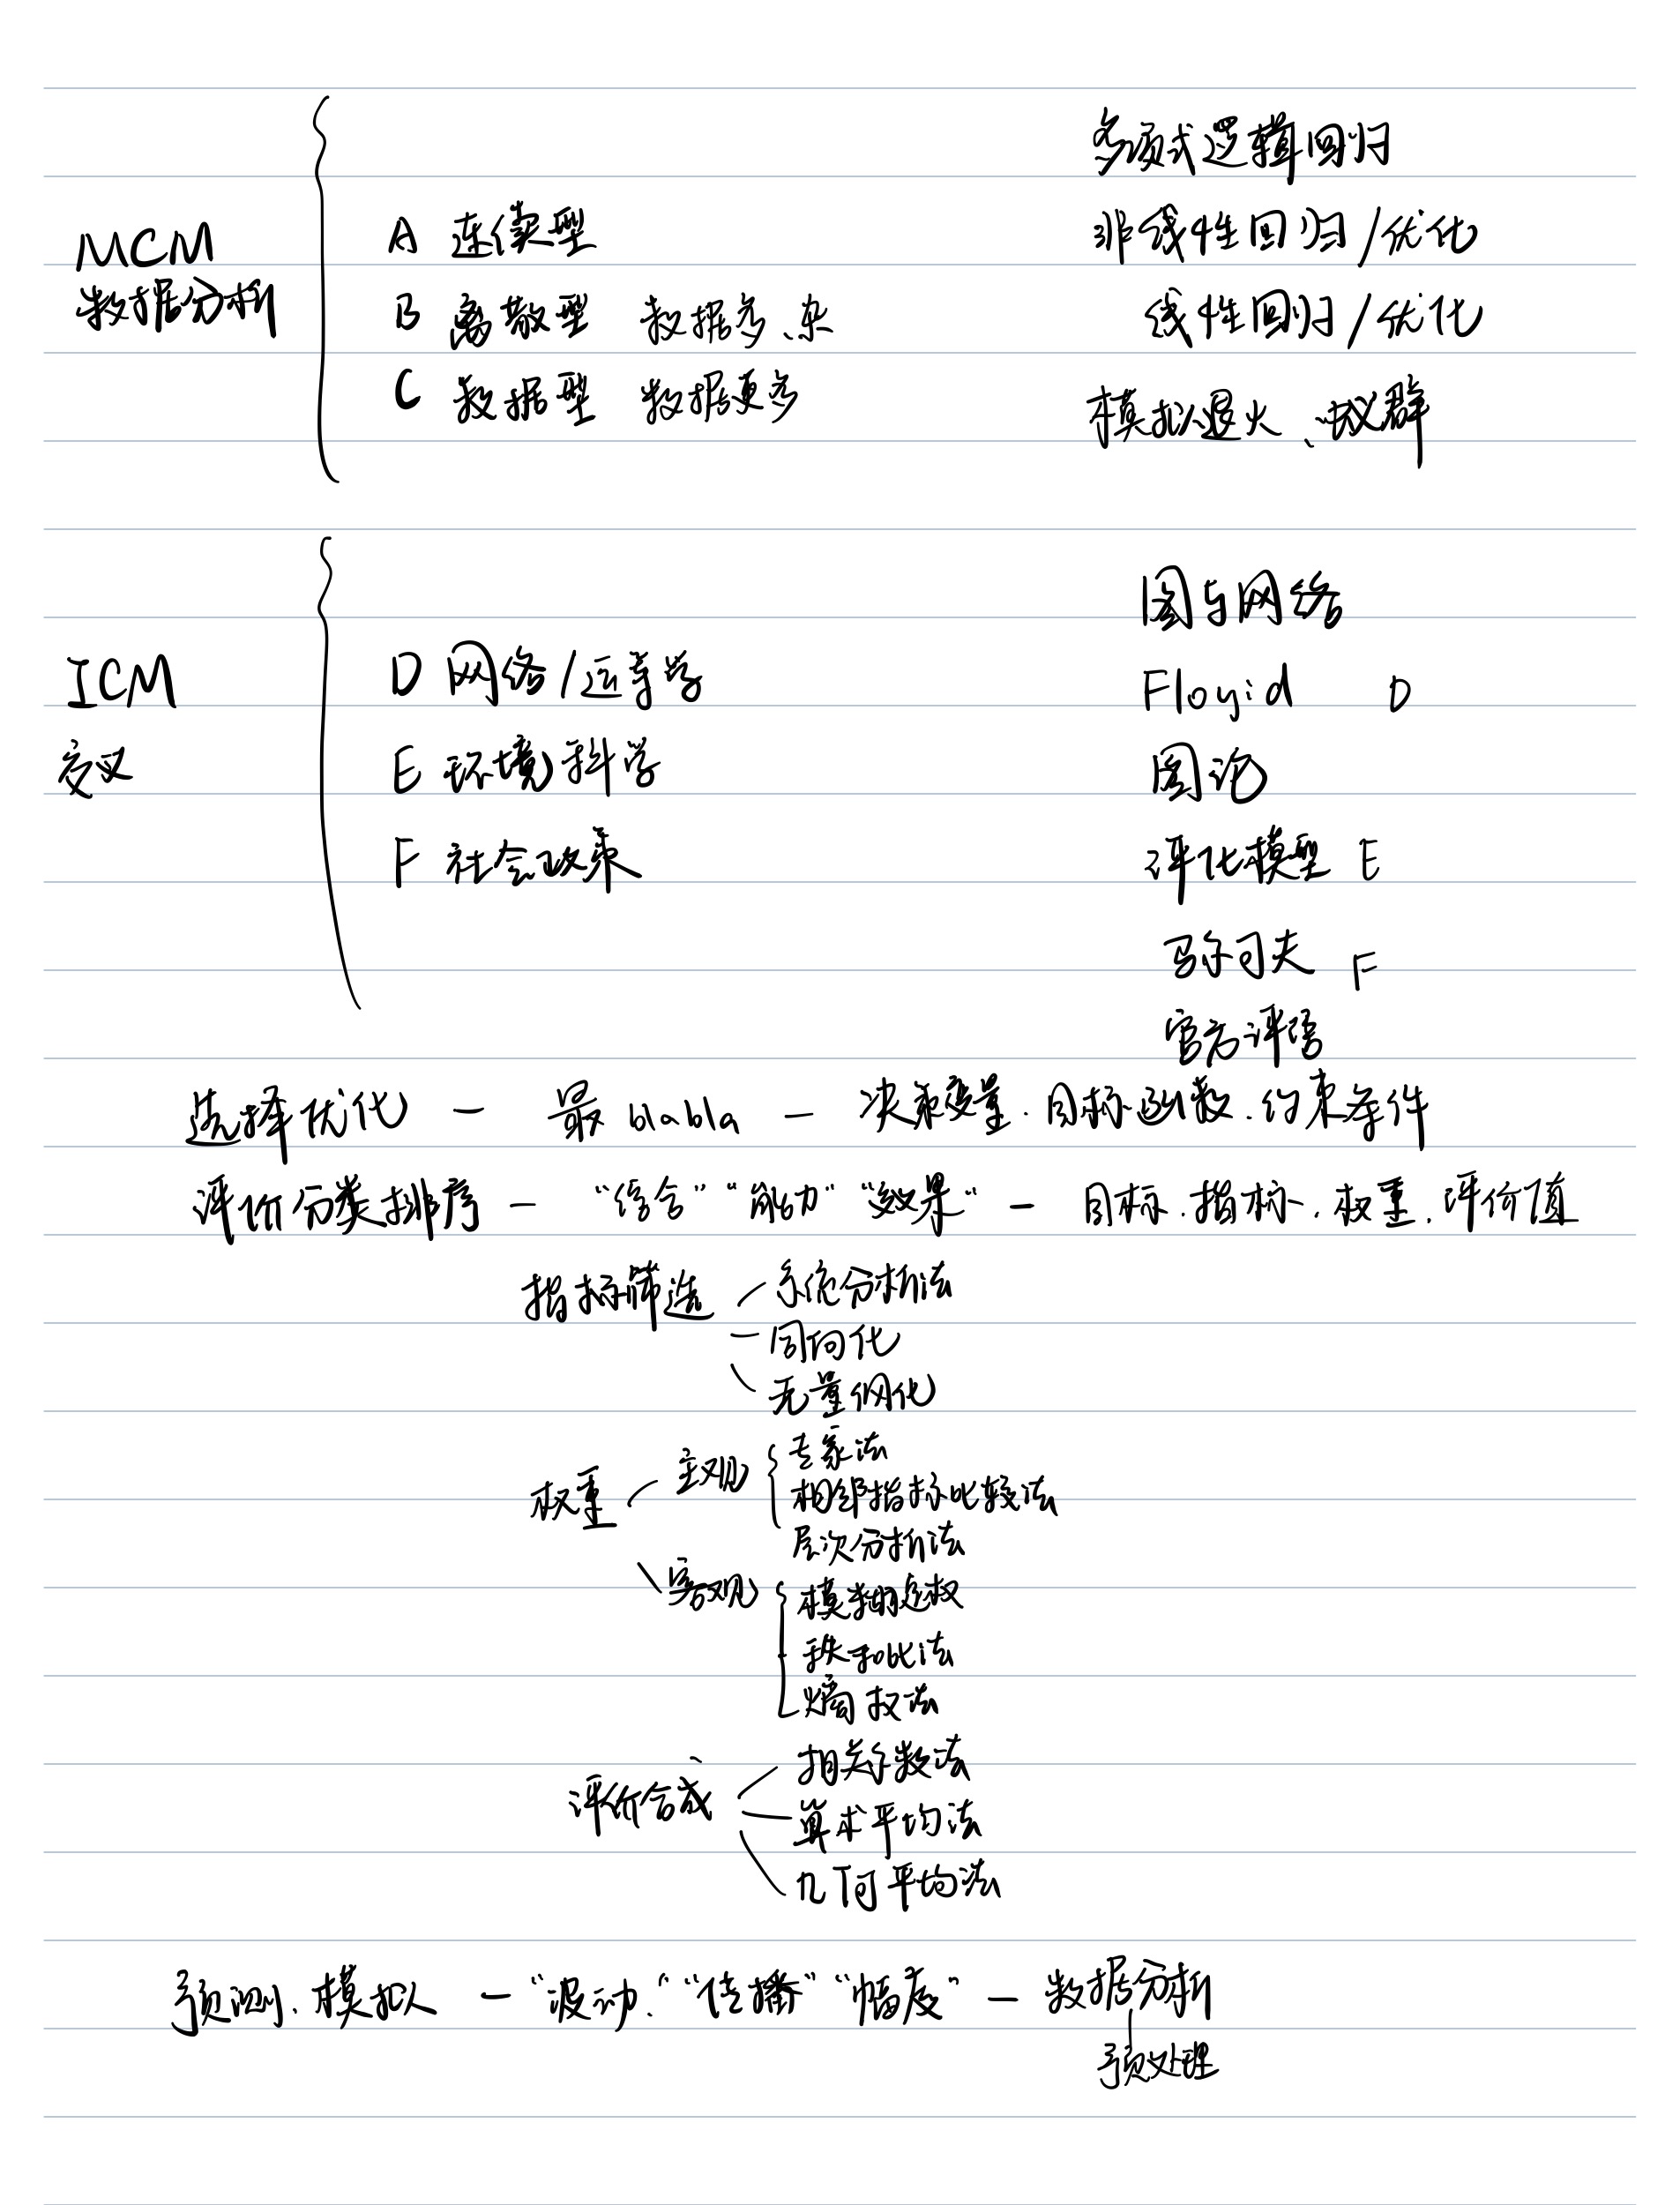 多项式逻辑回归
MCM
数据分析
A 连续型
非线性回归/优化
B 离散型 数据多、杂
线性回归/优化
C 数据型 数据更多
模拟退火、蚁群
图与网络
ICM
交叉
D 网络/运筹学
Floyid D
E 环境科学
图论
F 社会政策
评化模型 E
马尔可夫 F
官方评语
选择优化 — 最 blabla — 决策变量、目标函数、约束条件
评价分类排序 — “综合” “能力” “效果” — 目标、指标、权重、评价值
指标筛选 系统分析法
同向化
无量纲化
权重 主观 专家法
相邻指标比较法
层次分析法
客观 模糊定权
秩和比法
熵权法
评价合成 相关系数法
算术平均法
几何平均法
预测、模拟 — “波动” “传播” “幅度” — 数据分析
预处理